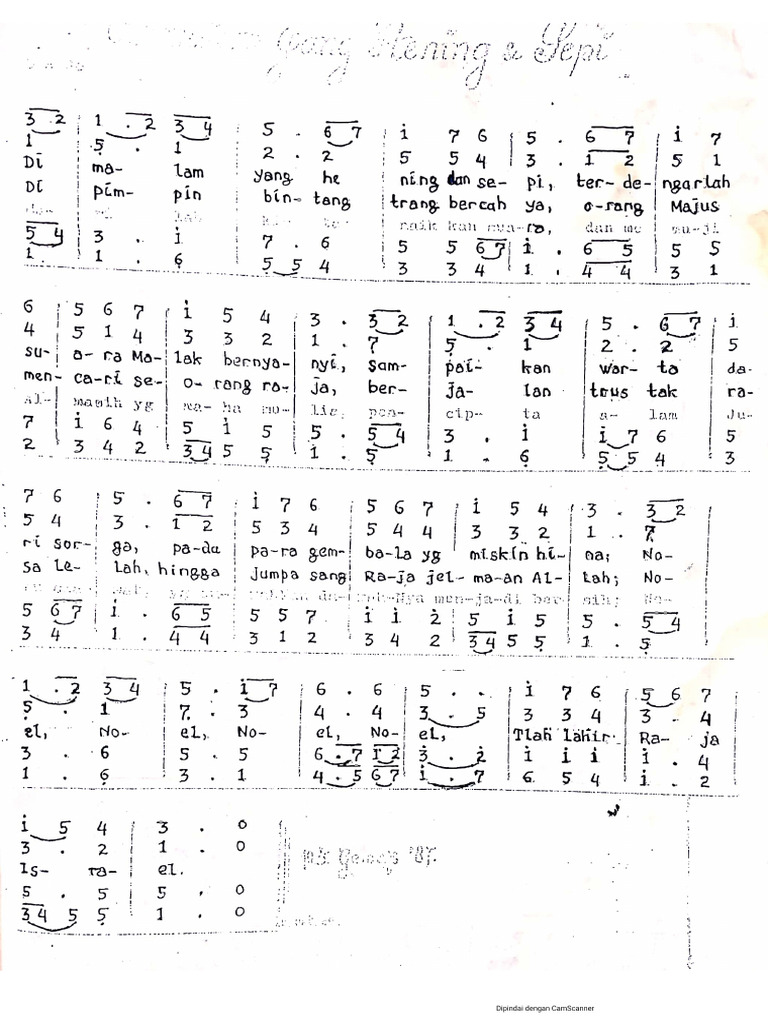 Yang Hening & Sepi
3 2 | 1 . 2 3 4 | 5 . 6 7 | i 7 6 | 5 . 6 7 | i 7
1 | 5 . 1 | 2 . 2 | 5 5 4 | 3 . 1 2 | 5 1
Di | ma- lam | yang he | ning dan se- | pi, ter- de- | ngarlah
Di | pim- pin | bin- tang | trang bercah | ya, o-rang | Majus
naik kan | ra, dan me | mu-ji
5 4 | 3 . i | 7 . 6 | 5 5 6 7 | i . 6 5 | 5 5
1 . | 1 . 6 | 5 5 4 | 3 3 4 | 1 . 4 4 | 3 1
6 | 5 6 7 | i 5 4 | 3 . 3 2 | 1 . 2 3 4 | 5 . 6 7 | i
4 | 5 1 4 | 3 3 2 | 1 . 7 | 5 . 1 | 2 . 2 | 5
su- | a- ra Ma- | lak bernya- | nyi, Sam- | pai- kan | war- ta | da-
men- | ca-ri se- | o- rang ra- | ja, ber- | ja- lan | trus tak | ra-
Al- | masih yg | ma- ha mu- | lia; pen- | cip- ta | a- lam | Ju-
7 | i 6 4 | 5 i 5 | 5 . 5 4 | 3 . i | i 7 6 | 5
2 | 3 4 2 | 3 4 5 5 | 1 . 5 | 1 . 6 | 5 5 4 | 3
7 6 | 5 . 6 7 | i 7 6 | 5 6 7 | i 5 4 | 3 . 3 2
5 4 | 3 . 1 2 | 5 3 4 | 5 4 4 | 3 3 2 | 1 . 7
ri sor- | ga, pa-da | pa-ra gem- | ba-la yg | miskin hi- | na; No-
sa le- | lah, hingga | Jumpa sang | Ra-ja jel- | ma-an Al- | lah; No-
Nya men-ja-di ber- | sih; No-
5 6 7 | i . 6 5 | 5 5 7 | i i 2 | 5 i 5 | 5 . 5 4
3 4 | 1 . 4 4 | 3 1 2 | 3 4 2 | 3 4 5 5 | 1 . 5
1 . 2 3 4 | 5 . i 7 | 6 . 6 | 5 . . | i 7 6 | 5 6 7
5 . 1 | 7 . 3 | 4 . 4 | 3 . 5 | 3 3 4 | 3 . 4
el, No- | el, No- | el, No- | el, | Tlah lahir | Ra- ja
3 . 6 | 5 . 5 | 6 . 7 1 2 | 3 . 2 | i i i | i . 4
1 . 6 | 3 . 1 | 4 . 5 6 7 | i . 7 | 6 5 4 | i . 2
i 5 4 | 3 . 0
3 . 2 | 1 . 0
Is- ra- | el.
5 . 5 | 5 . 0
3 4 5 5 | 1 . 0
Dipindai dengan CamScanner